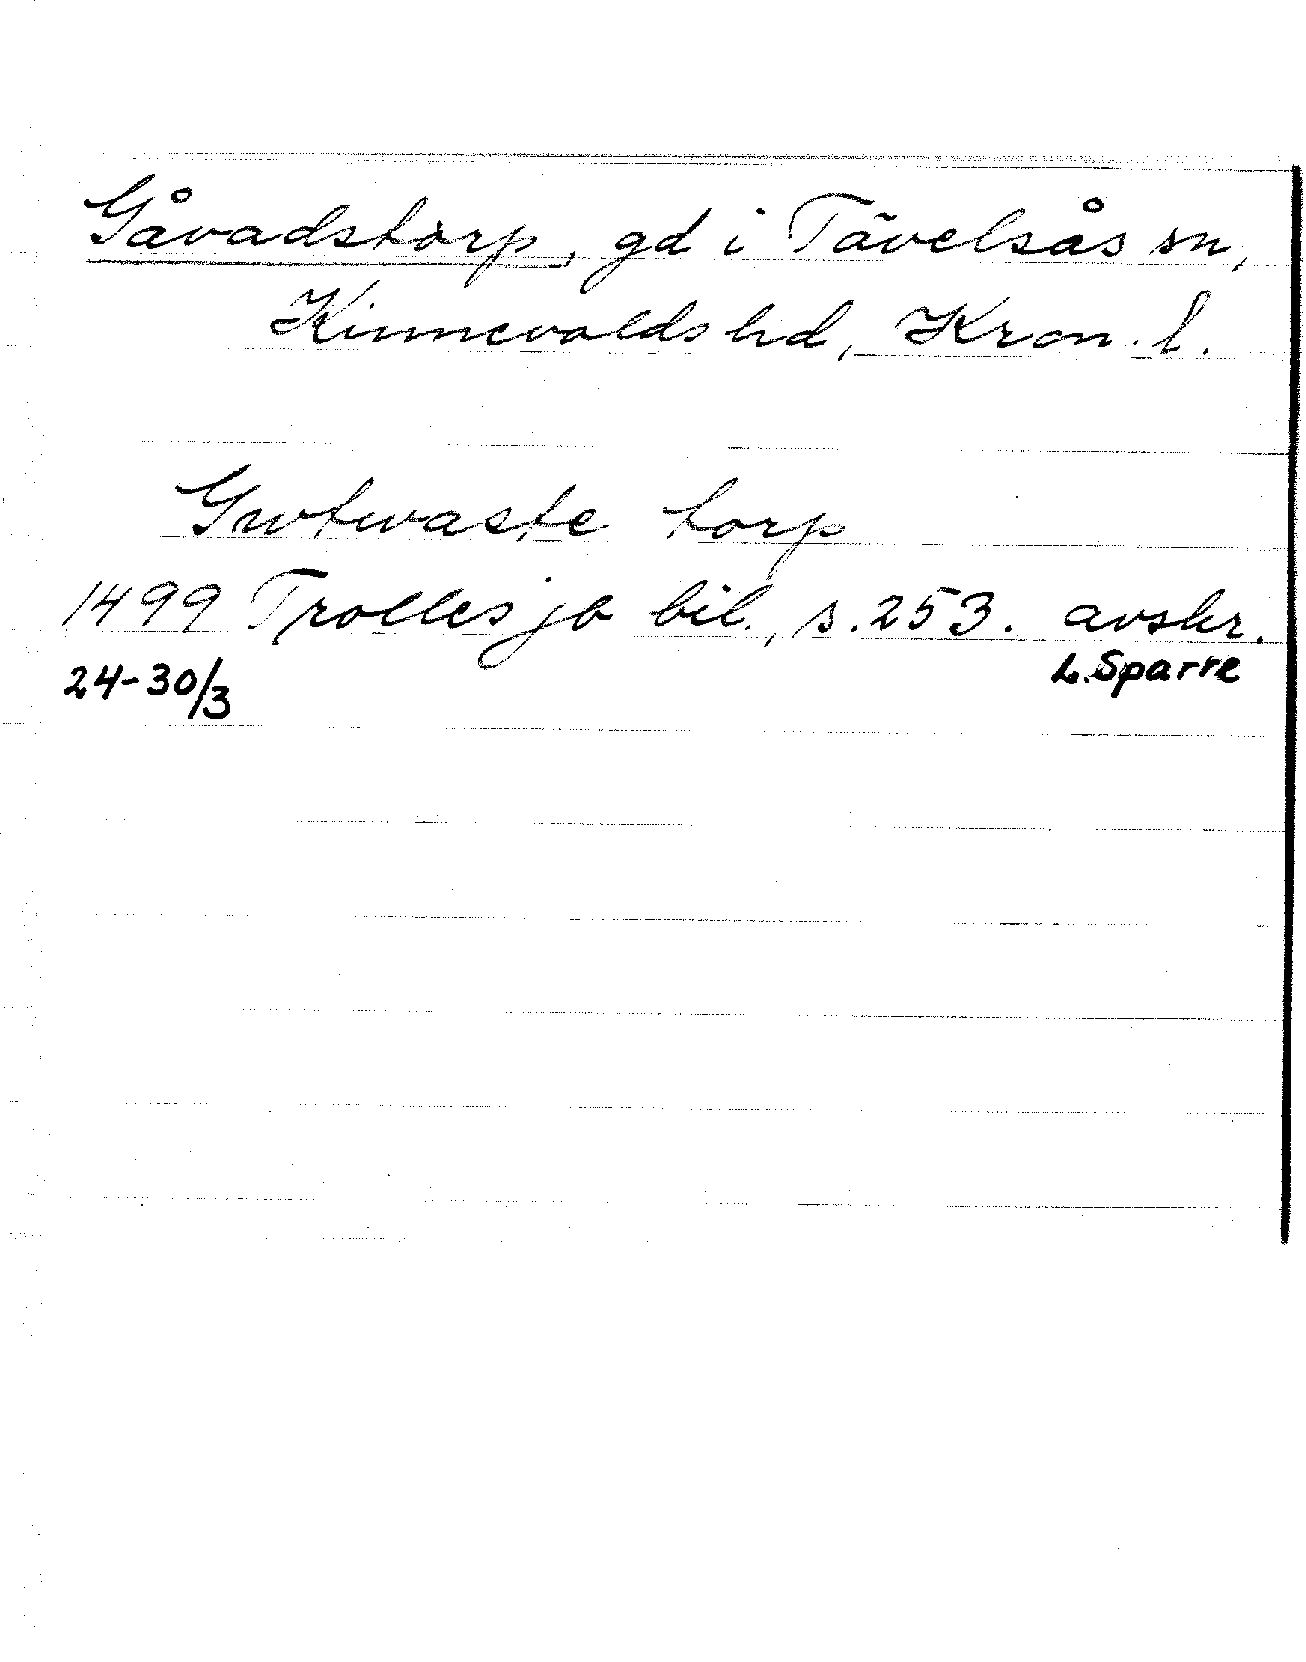 Gåvadstorp, gd i Tävelsås sn,
Kinnevalds hd, Kron. l.
Gwtwaste torp
1499 Trolles jb bil., s. 253. avskr.
24-30/3 L. Sparre